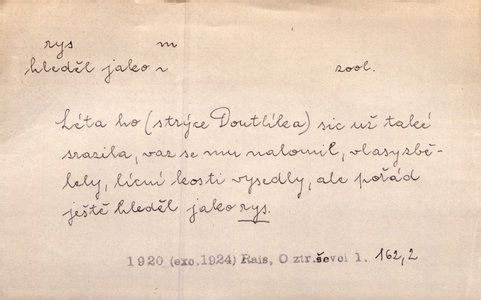 rys m
hleděl jako r zool.
Léta ho (strýce Doutlíka) sic už také
srazila, vaz se mu nalomil, vlasy zbě-
lely, lícní kosti vysedly, ale pořád
ještě hleděl jako rys.
1920 (exc.1924) Rais, O ztr.ševci 1. 162,2